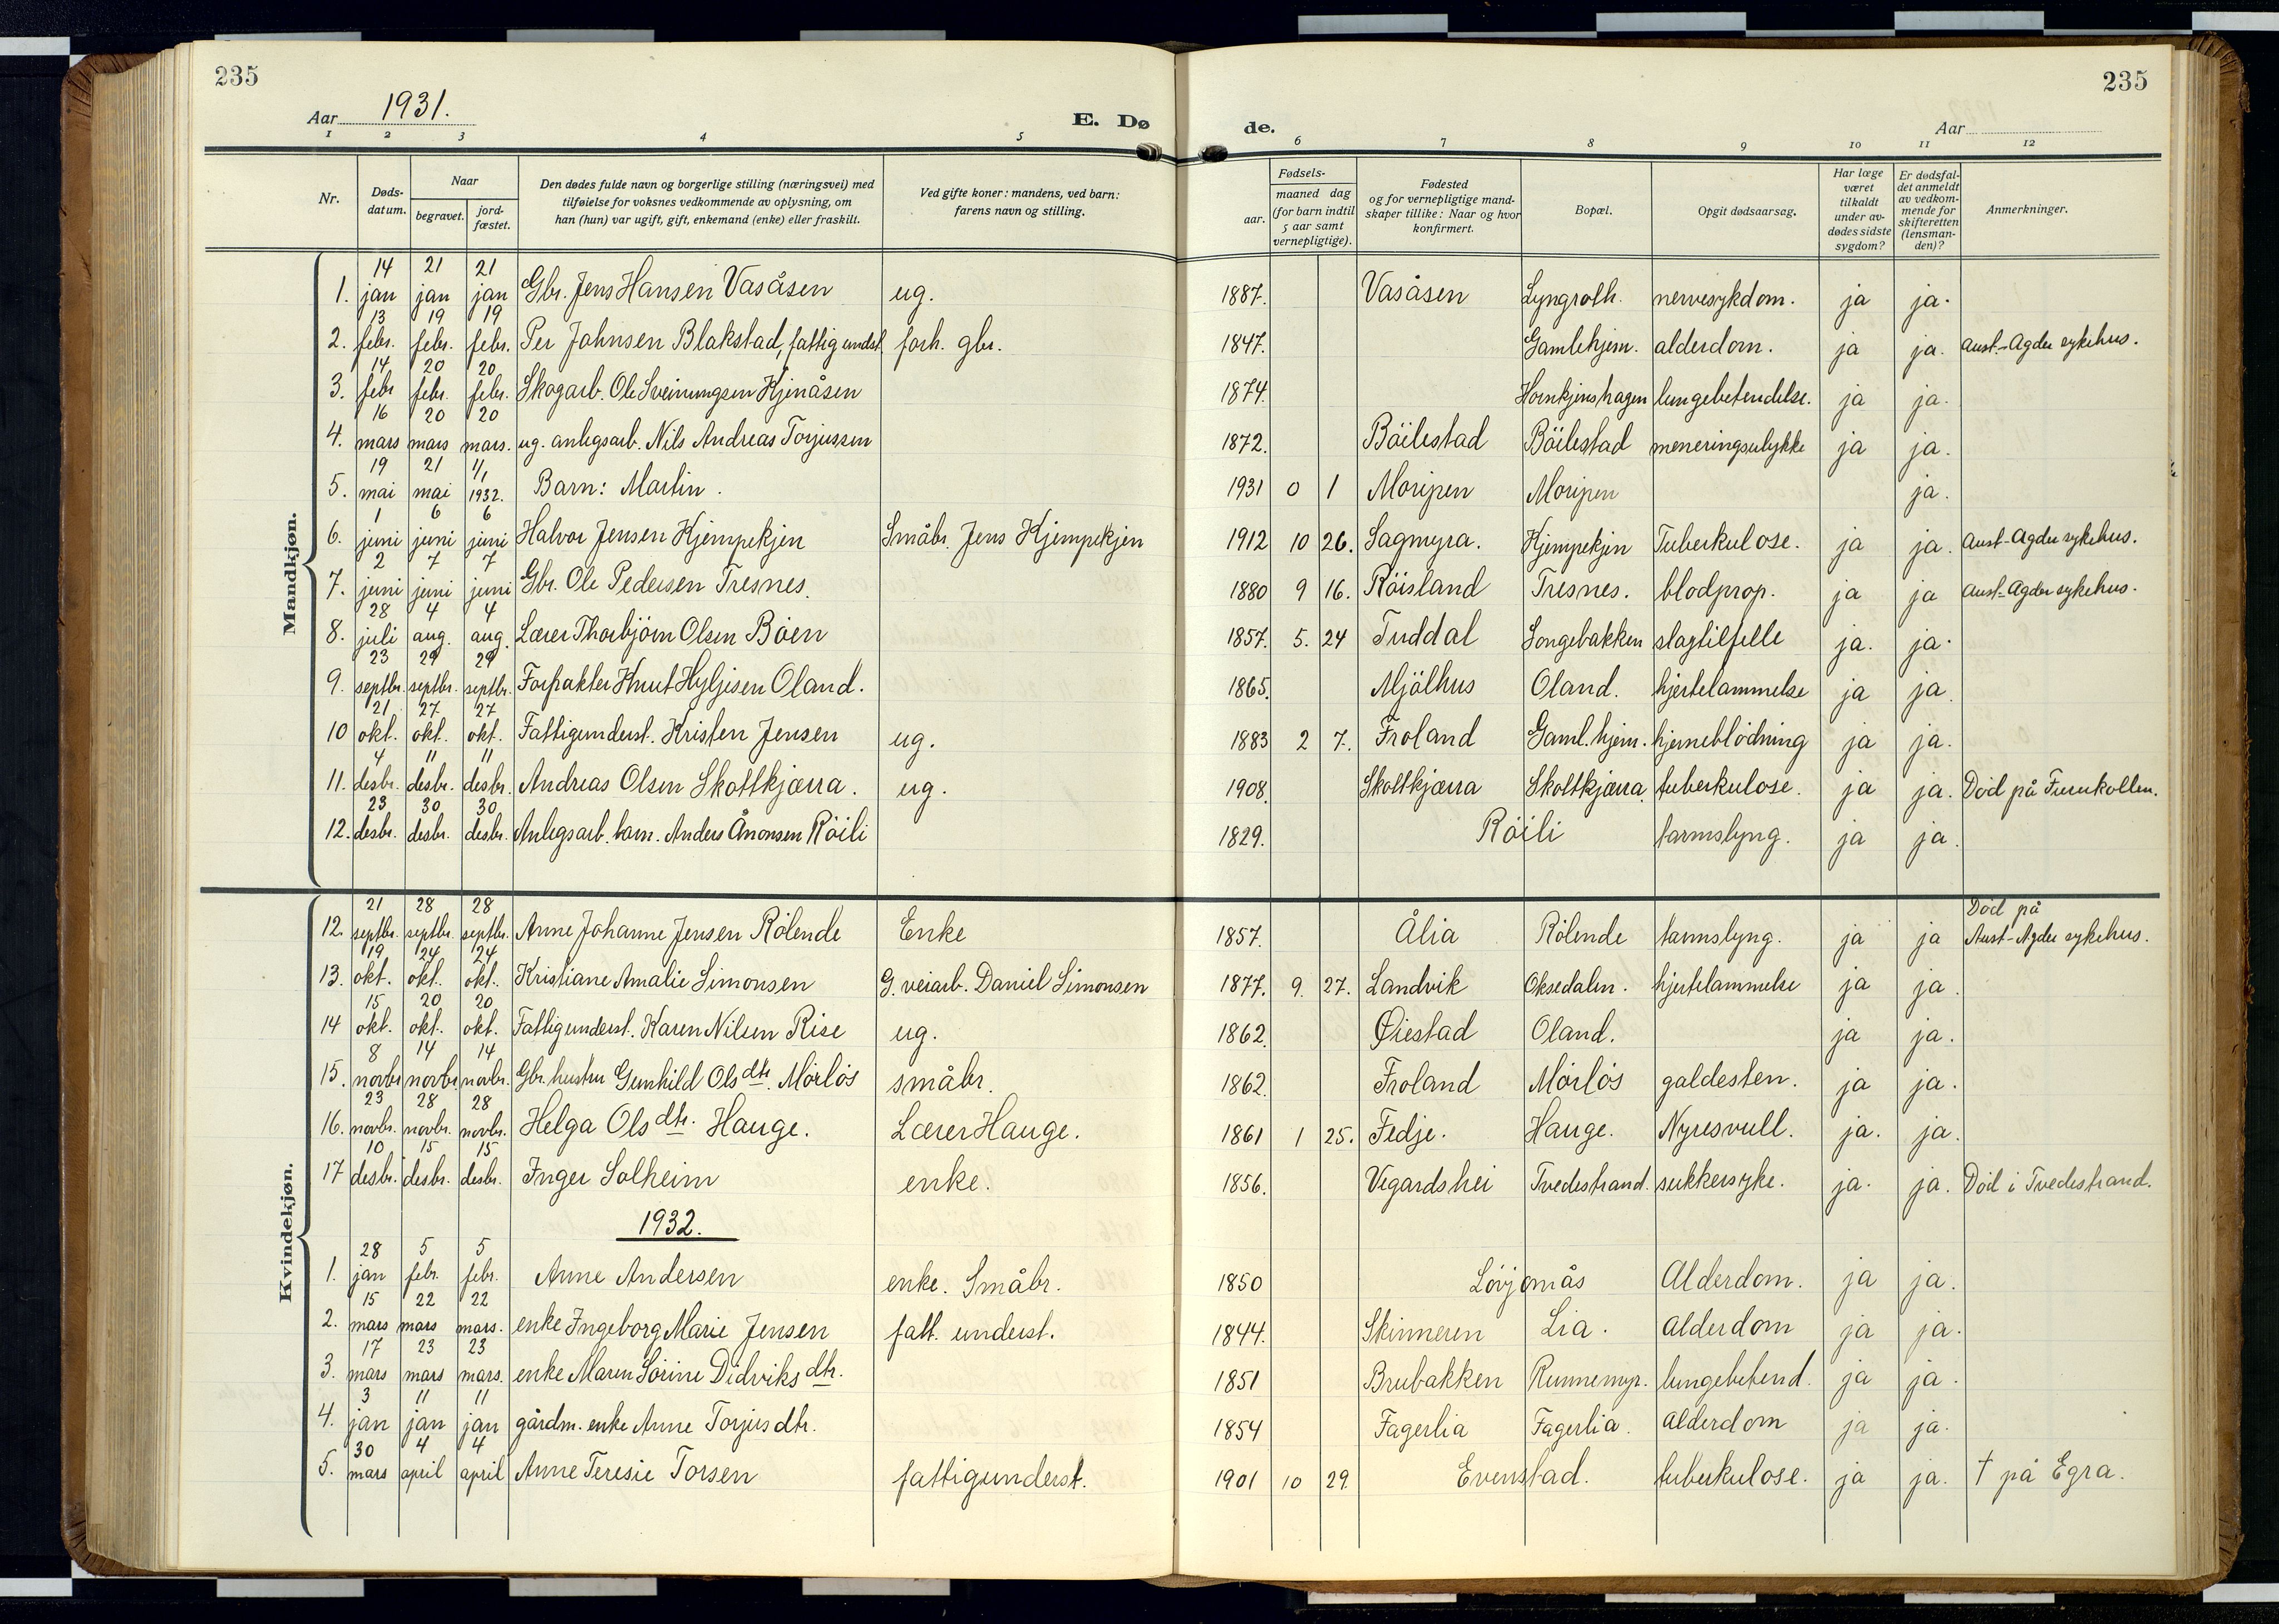 235
235
Aar 1931.
E. Dø
de.
Aar
1 2 3 4 5 6 7 8 9 10 11 12
Nr.
Døds-datum.
Naar
begravet.
jord-fæstet.
Den dødes fulde navn og borgerlige stilling (næringsvei) med tilføielse for voksnes vedkommende av oplysning, om han (hun) var ugift, gift, enkemand (enke) eller fraskilt.
Ved gifte koner: mandens, ved barn: farens navn og stilling.
Fødsels-
aar.
maaned dag
(for barn indtil 5 aar samt vernepligtige).
Fødested og for vernepligtige mandskaper tillike: Naar og hvor konfirmert.
Bopæl.
Opgit dødsaarsag.
Har læge været tilkaldt under avdødes sidste sygdom?
Er dødsfaldet anmeldt av vedkommende for skifteretten (lensmanden)?
Anmerkninger.
Mandkjøn.
1. 14 jan 21 jan 21 jan Gbr. Jens Hansen Vasåsen ug. 1887. Vasåsen Lyngroth. nervesykdom. ja ja.
2. 13 febr. 19 febr. 19 febr. Per Johnsen Blakstad, fattigundst. forh. gbr. 1847. Gamlehjem. alderdom. ja ja. Aust-Agder sykehus.
3. 14 febr 20 febr. 20 febr. Skogarb. Ole Sveinungsen Kjenåsen 1874. Hornkjenshagen lungebetendelse. ja ja.
4. 16 mars 20 mars 20 mars. ug. anlegsarb. Nils Andreas Torjussen 1872. Böilestad Böilestad meneringsulykke ja ja.
5. 19 mai 21 mai 1/1 1932. Barn: Martin. 1931 0 1 Moripen Moripen ja.
6. 1 juni 6 juni 6 juni Halvor Jensen Kjempekjen Småbr. Jens Kjempekjen 1912 10 26. Sagmyra. Kjempekjen Tuberkulose. ja ja. Aust-Agder sykehus.
7. 2 juni 7 juni 7 juni Gbr. Ole Pedersen Tresnes. 1880 9 16. Röisland Tresnes. blodprop. ja ja Aust-Agder sykehus.
8. 28 juli 4 aug. 4 aug. Lærer Thorbjörn Olsen Böen 1857. 5. 24 Tuddal Songebakken slagtilfelle ja. ja.
9. 23 septbr. 29 septbr. 29 septbr. Forpakter Knut Hyljesen Oland. 1865. Mjölhus Oland. hjertelammelse ja ja.
10 21 okt. 27 okt. 27 okt. Fattigunderst. Kristen Jensen ug. 1883 2 7. Froland Gaml.hjem. hjerneblödning ja ja.
11. 4 desbr. 11 desbr. 11 desbr. Andreas Olsen Skottkjærra. ug. 1908. Skottkjærra Skottkjærra tuberkulose. ja ja. Död på Furukollen.
12. 23 desbr. 30 desbr. 30 desbr. Anlegsarb. barn. Anders Ånonsen Röili 1829. Röili tarmslyng. ja ja.
Kvindekjøn.
12. 21 septbr. 28 septbr. 28 septbr. Anne Johanne Jensen Rölende Enke 1857. Ålia Rölende tarmslyng. ja ja Död på Aust-Agder sykehus.
13. 19 okt. 24 okt. 24 okt. Kristiane Amalie Simonsen G. veiarb. Daniel Simonsen 1877. 9. 27. Landvik Oksedalen. hjertelammelse ja ja.
14 15 okt. 20 okt. 20 okt. Fattigunderst. Karen Nilsen Rise ug. 1862. Øiestad Oland. ja ja.
15. 8 novbr 14 novbr 14 novbr. Gbr. hustru Gunhild Olsdtr. Mörlös småbr. 1862. Froland Mörlös galdesten. ja ja.
16. 23 novbr. 28 novbr. 28 novbr. Helga Olsdtr. Hauge. Lærer Hauge. 1861 1 25. Fedje. Hauge. Nyresvull. ja. ja.
17 10 desbr. 15 desbr. 15 desbr. Inger Solheim enke. 1856. Vegardshei Tvedestrand. sukkersyke. ja. ja. Död i Tvedestrand.
1932.
1. 28 jan 5 febr. 5 febr. Anne Andersen enke. Småbr. 1850 Lövjomås Alderdom. ja ja.
2. 15 mars 22 mars 22 mars. enke Ingeborg Marie Jensen fatt. underst. 1844. Skinneren Lia. Alderdom ja ja.
3. 17 mars 23 mars 23 mars. enke Maren Sörine Didviksdtr. 1851 Brubakken Runnemyr. lungebetend. ja ja.
4. 3 jan 11 jan 11 jan gårdm. enke Anne Torjusdtr. 1854 Fagerlia Fagerlia. Alderdom ja ja.
5. 30 mars 4 april 4 april Anne Teresie Torsen fattigunderst. 1901 10 29. Evenstad. tuberkulose. ja ja. † på Egra.